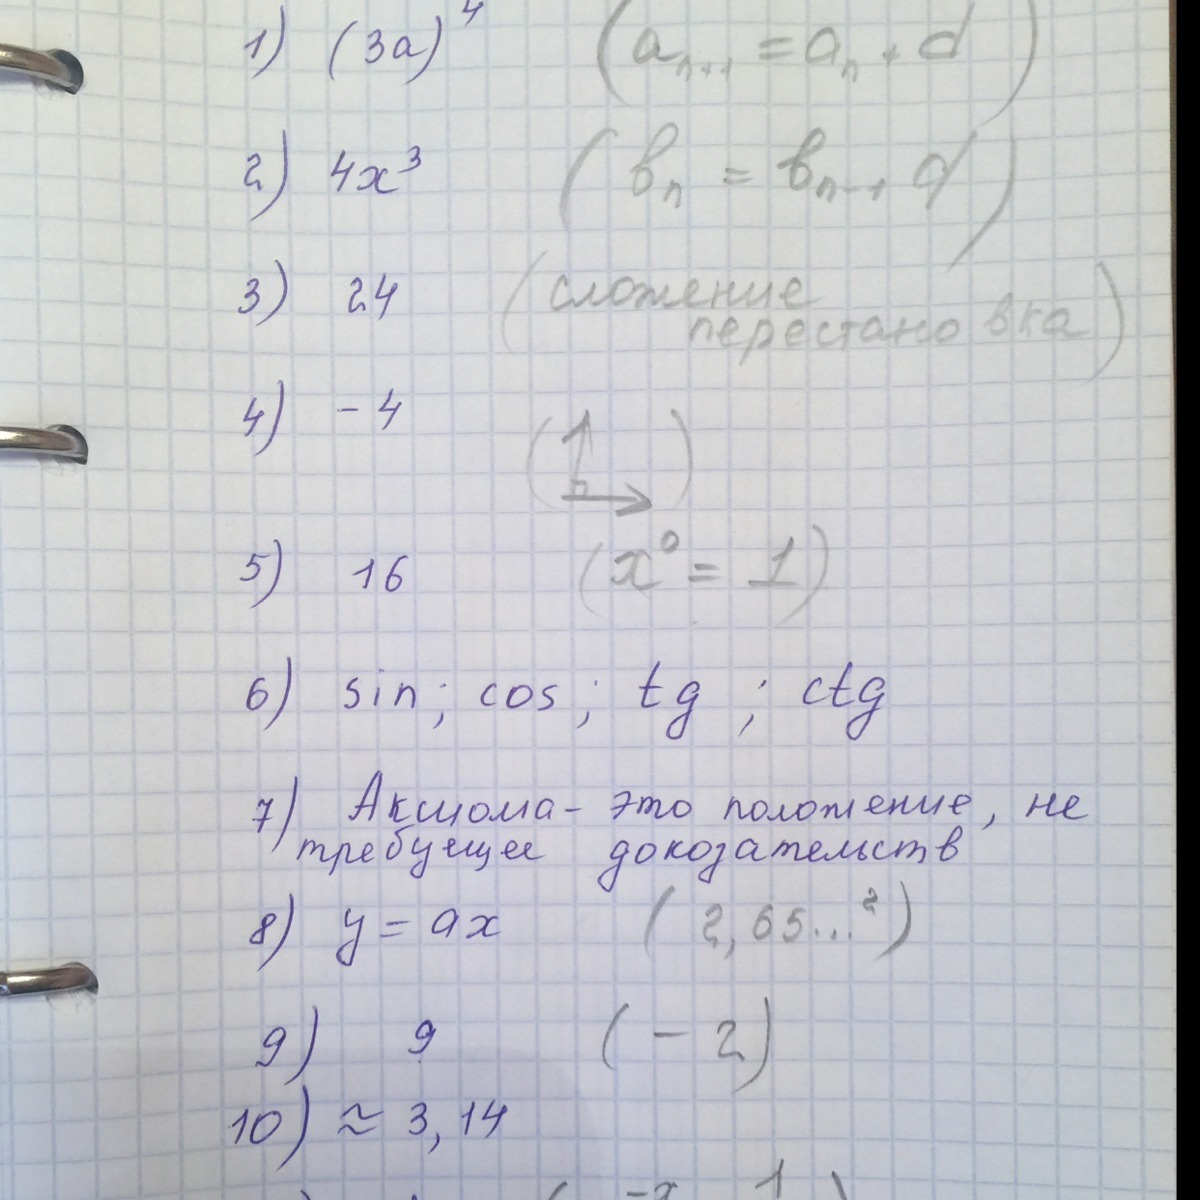 1) (3a)⁴ (aₙ₊₁ = aₙ + d)
2) 4x³ (bₙ = bₙ₋₁ q)
3) 24 (сложение
перестановка)
4) - 4
5) 16 (x⁰ = 1)
6) sin; cos; tg; ctg
7) Аксиома - это положение, не
требующее докозательств
8) y = ax (2,65...²)
9) 9 (- 2)
10) ≈ 3,14